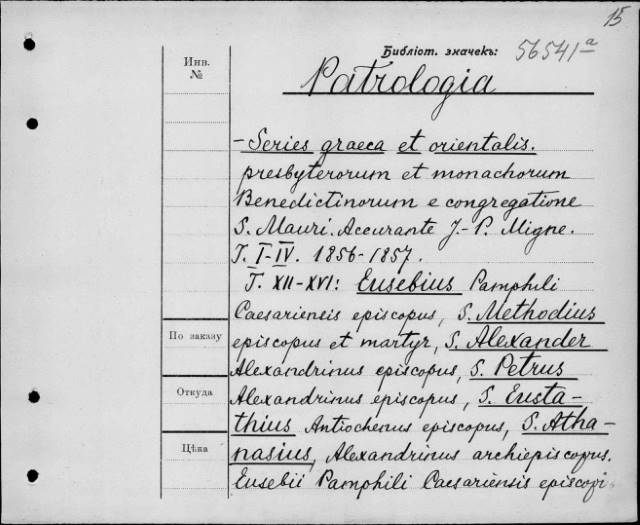 15
Библіот. значекъ: 56541ª
Инв.
№
Patrologia
- Series graeca et orientalis.
presbyterorum et monachorum
Benedictinorum e congregatione
S. Mauri. Accurante J.-P. Migne.
T. I-IV. 1856-1857.
T. XII-XVI: Eusebius Pamphili
Caesariensis episcopus, S. Methodius
По заказу
episcopus et martyr, S. Alexander
Alexandrinus episcopus, S. Petrus
Откуда
Alexandrinus episcopus, S. Eusta-
thius Antiochenus episcopus, S. Atha-
Цѣна
nasius, Alexandrinus archiepiscopus.
Eusebii Pamphili Caesariensis episcopi